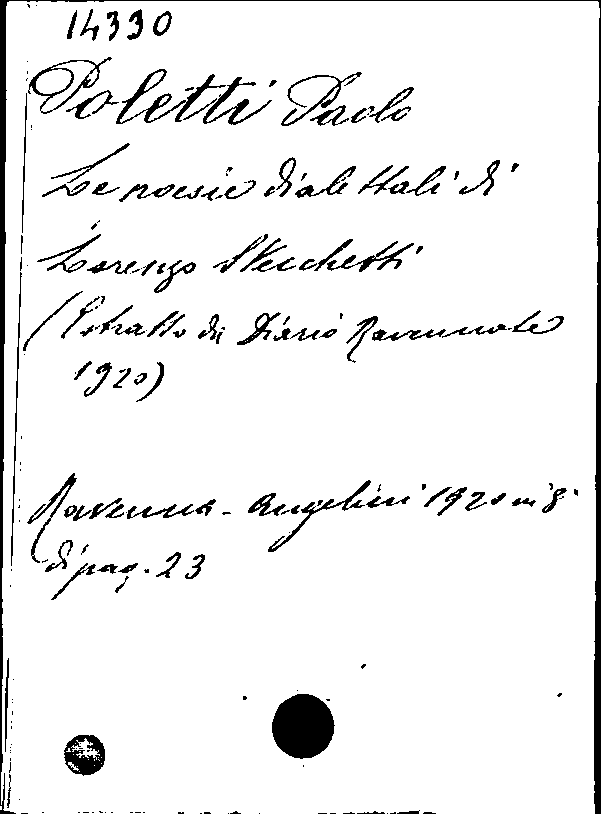 14330
Poletti Paolo
Le poesie dialettali di
Lorenzo Stecchetti
(Estratto da Diario Ravennate
1920)
Ravenna - Angelini 1920 in 8°
di pag. 23